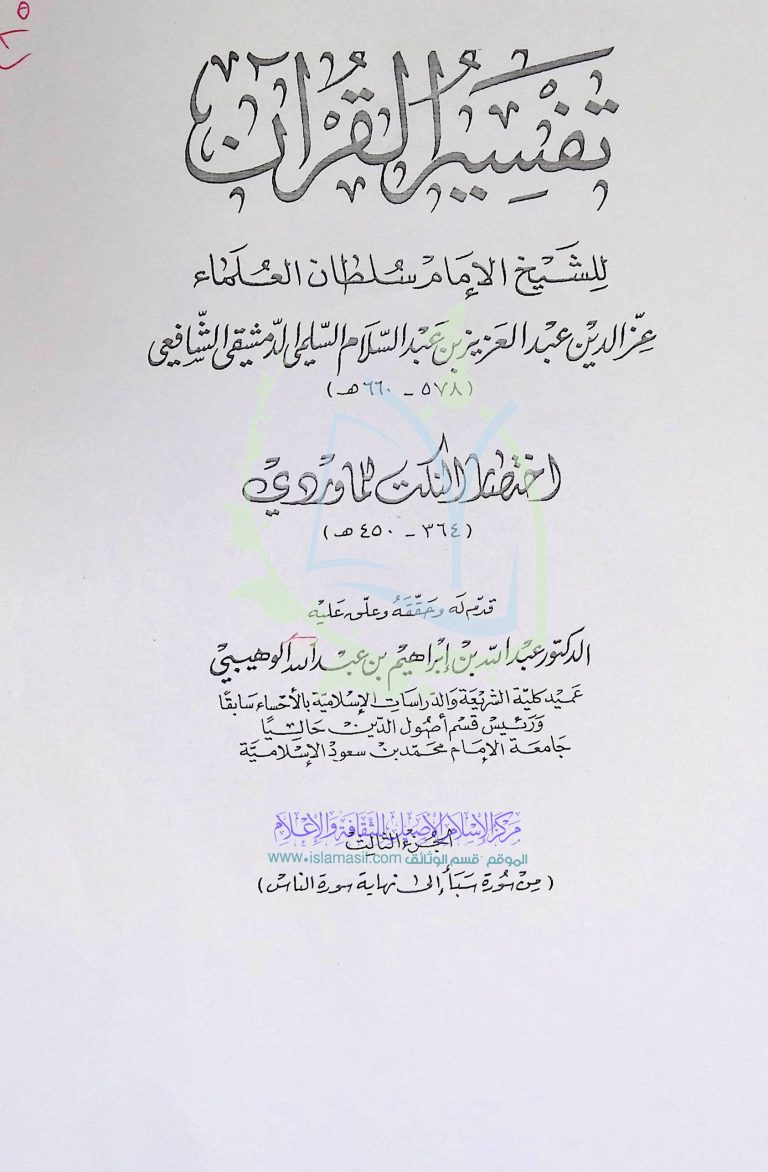 تفسير القرآن
للشيخ الإمام سلطان العلماء
عز الدين عبد العزيز بن عبد السلام السلمي الدمشقي الشافعي
(٥٧٨ - ٦٦٠ هـ)
اختصار النكت للماوردي
(٣٦٤ - ٤٥٠ هـ)
قدم له وحققه وعلق عليه
الدكتور عبد الله بن إبراهيم بن عبد الله الوهيبي
عميد كلية الشريعة والدراسات الإسلامية بالأحساء سابقًا
ورئيس قسم أصول الدين حاليًا
جامعة الإمام محمد بن سعود الإسلامية
مركز الإسلام الأصيل للثقافة والإعلام
الجزء الثالث
الموقع قسم الوثائق www.islamasil.com
(من سورة سبأ إلى نهاية سورة الناس)